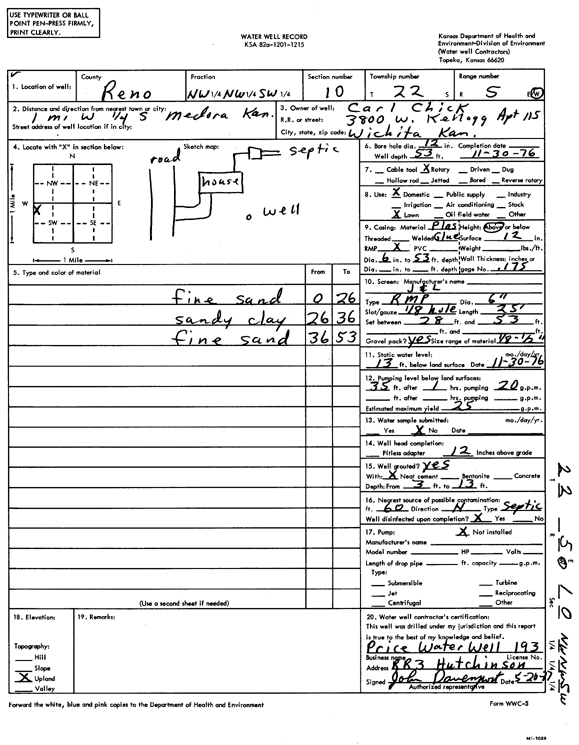 USE TYPEWRITER OR BALL
POINT PEN-PRESS FIRMLY,
PRINT CLEARLY.
WATER WELL RECORD
KSA 82a-1201-1215
Kansas Department of Health and
Environment-Division of Environment
(Water well Contractors)
Topeka, Kansas 66620
1. Location of well:
County
Reno
Fraction
NW 1/4 NW 1/4 SW 1/4
Section number
10
Township number
T 22 S
Range number
R 5 E W
2. Distance and direction from nearest town or city:
1 mi W 1/4 S Medora Kan.
Street address of well location if in city:
3. Owner of well: Carl Chick
R.R. or street: 3800 W. Kellogg Apt 115
City, state, zip code: Wichita Kan.
4. Locate with "X" in section below:
N
NW NE
W X E
SW SE
S
1 Mile
1 Mile
Sketch map:
road
septic
house
well
6. Bore hole dia. 12 in. Completion date
Well depth 53 ft. 11-30-76
7. Cable tool X Rotary Driven Dug
Hollow rod Jetted Bored Reverse rotary
8. Use: X Domestic Public supply Industry
Irrigation Air conditioning Stock
X Lawn Oil field water Other
9. Casing: Material Plas Height: Above or below
Threaded Welded Glue Surface 12 in.
RMP X PVC Weight lbs./ft.
Dia. 6 in. to 53 ft. depth Wall Thickness: inches or
Dia. in. to ft. depth gage No. .175
5. Type and color of material
From To
fine sand 0 26
sandy clay 26 36
fine sand 36 53
(Use a second sheet if needed)
10. Screen: Manufacturer's name
J & L
Type RMP Dia. 6"
Slot/gauze 1/8 hole Length 25'
Set between 28 ft. and 53 ft.
ft. and ft.
Gravel pack? yes Size range of material 1/8-1/2"
11. Static water level: mo./day/yr.
13 ft. below land surface Date 11-30-76
12. Pumping level below land surfaces:
35 ft. after 1 hrs. pumping 20 g.p.m.
ft. after hrs. pumping g.p.m.
Estimated maximum yield 25 g.p.m.
13. Water sample submitted: mo./day/yr.
Yes X No Date
14. Well head completion:
Pitless adapter 12 Inches above grade
15. Well grouted? yes
With: X Neat cement Bentonite Concrete
Depth: From 3 ft. to 13 ft.
16. Nearest source of possible contamination:
ft. 60 Direction N Type Septic
Well disinfected upon completion? X Yes No
17. Pump: X Not installed
Manufacturer's name
Model number HP Volts
Length of drop pipe ft. capacity g.p.m.
Type:
Submersible Turbine
Jet Reciprocating
Centrifugal Other
18. Elevation:
Topography:
Hill
Slope
X Upland
Valley
19. Remarks:
20. Water well contractor's certification:
This well was drilled under my jurisdiction and this report
is true to the best of my knowledge and belief.
Price Water Well 193
Business name License No.
Address RR3 Hutchinson
Signed John Davenport Date 5-20-77
Authorized representative
Forward the white, blue and pink copies to the Department of Health and Environment
Form WWC-5